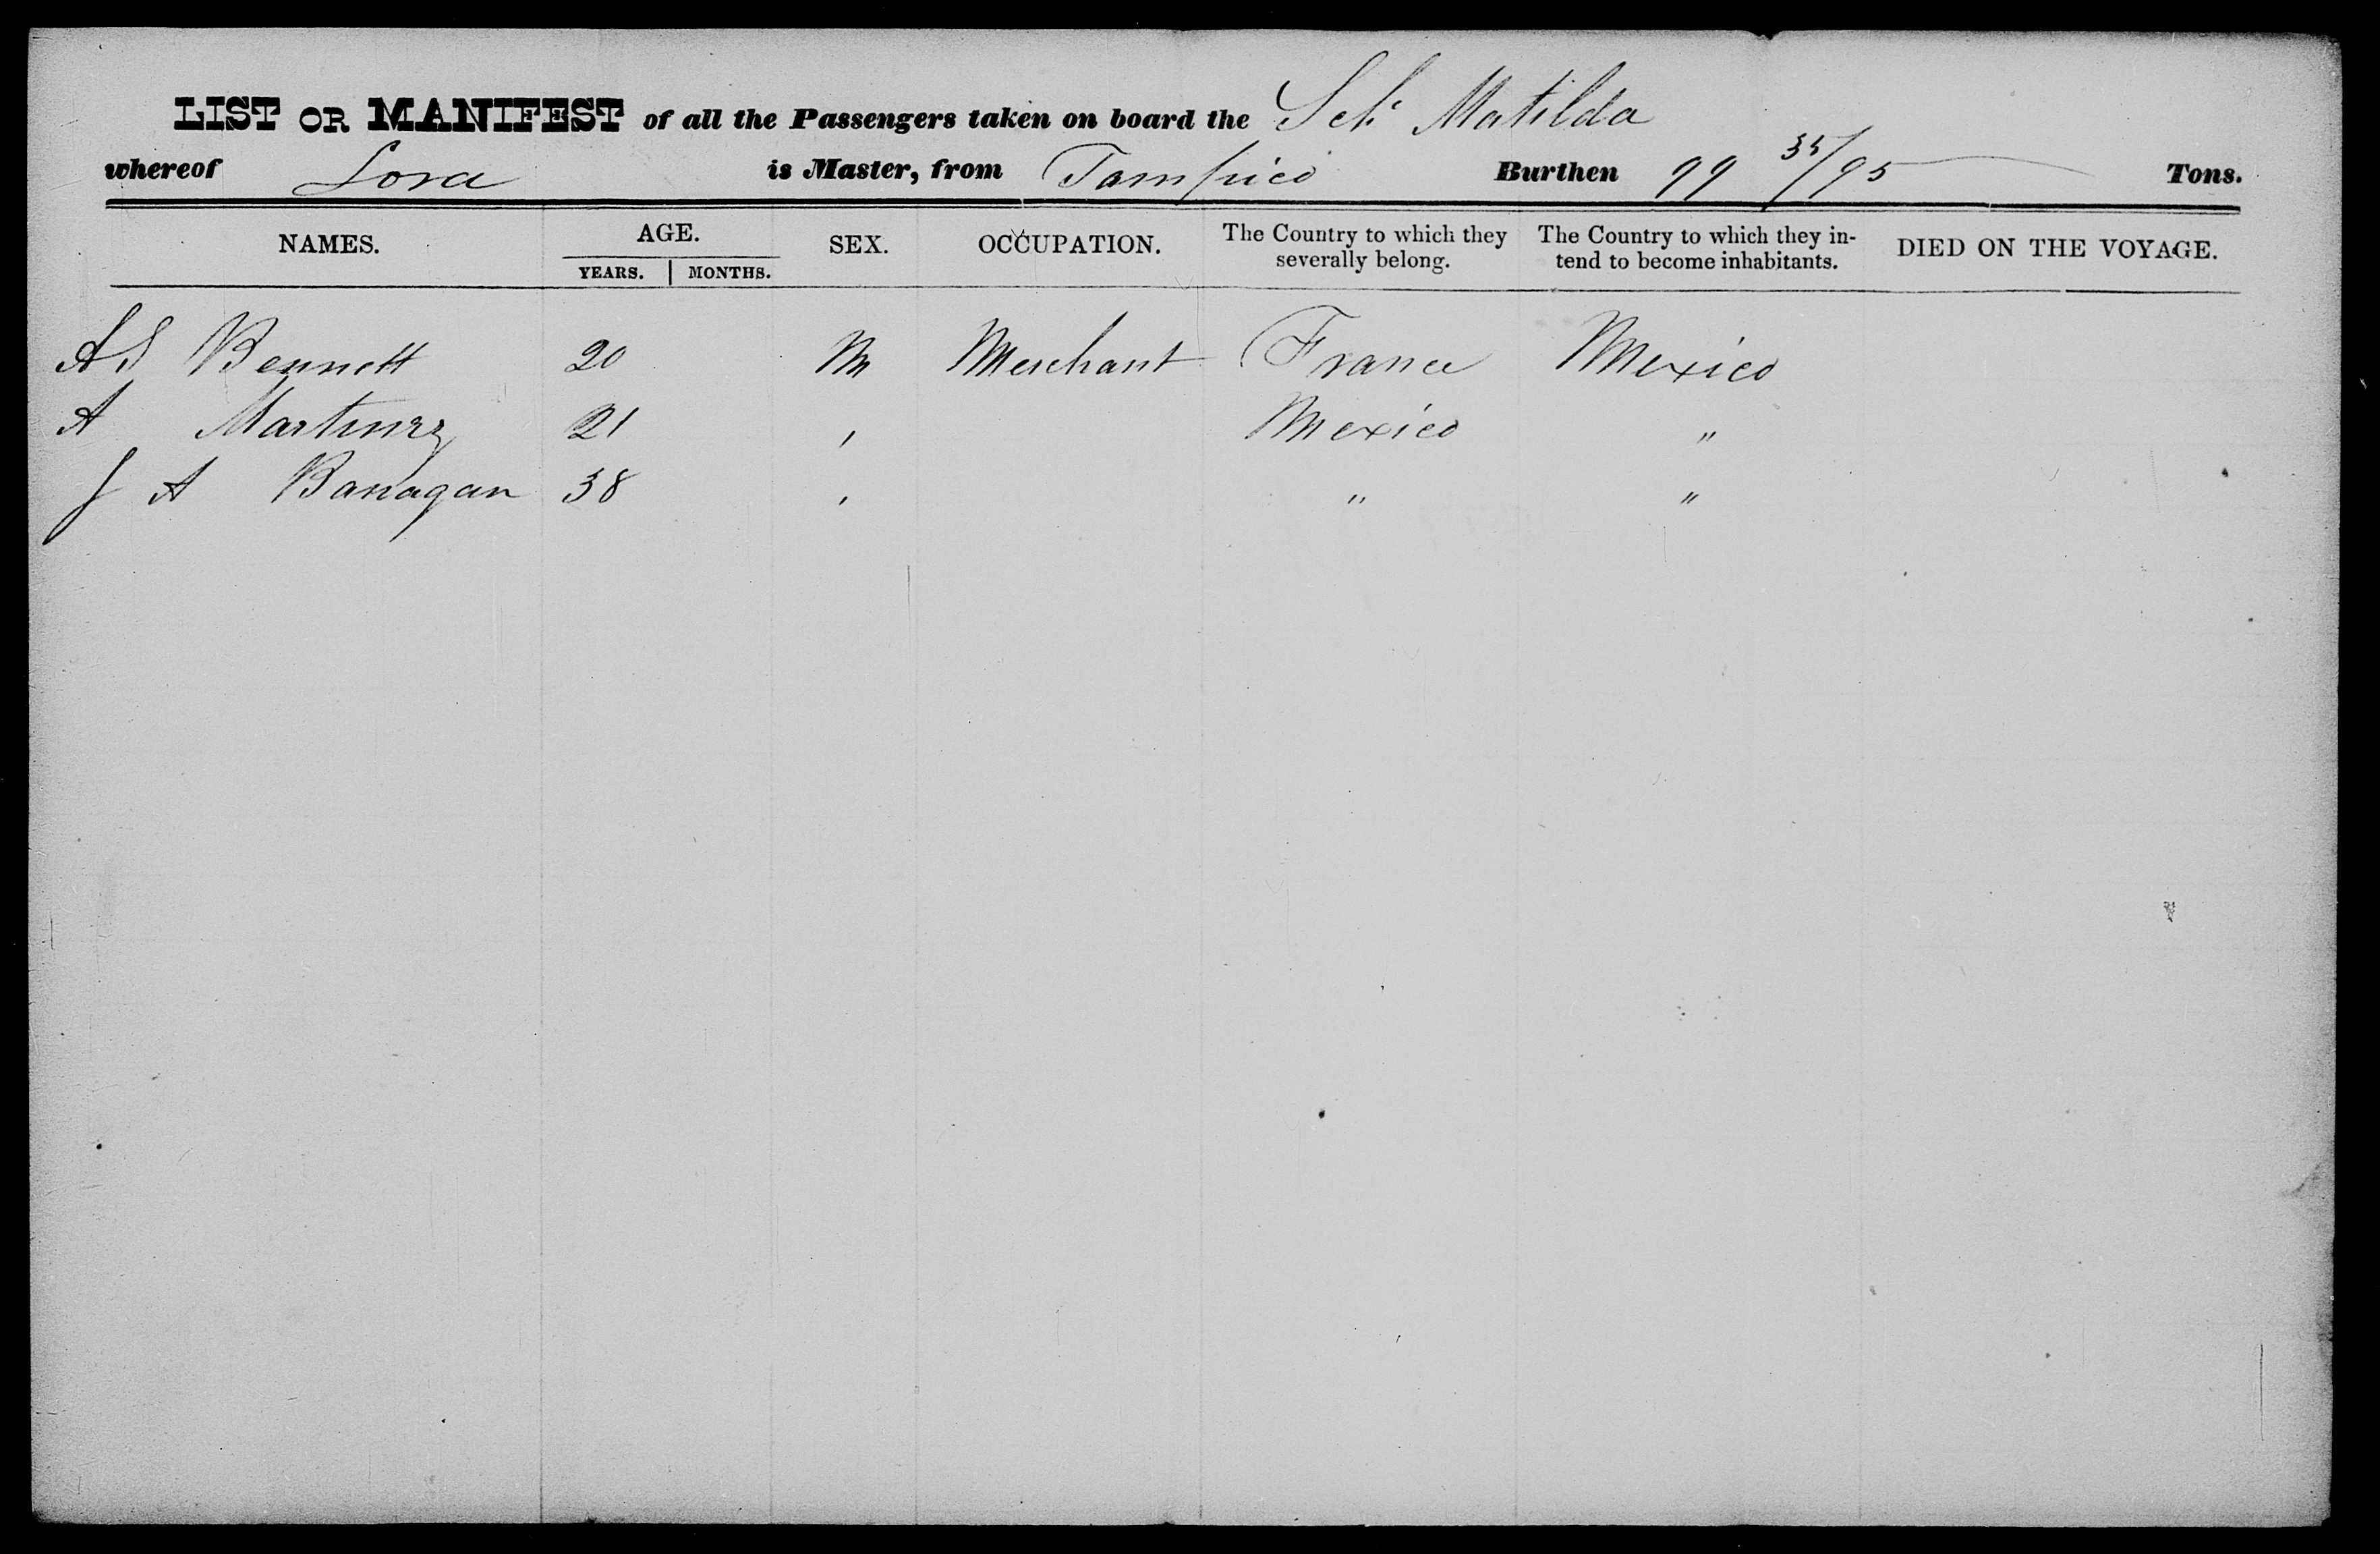 LIST OR MANIFEST of all the Passengers taken on board the Sch Matilda
whereof Lora is Master, from Tampico Burthen 99 35/95 Tons.
NAMES. AGE. SEX. OCCUPATION. The Country to which they severally belong. The Country to which they intend to become inhabitants. DIED ON THE VOYAGE.
YEARS. MONTHS.
A S Bennett 20 M Merchant France Mexico
A Martinez 21 , Mexico "
J A Banagan 38 , " "